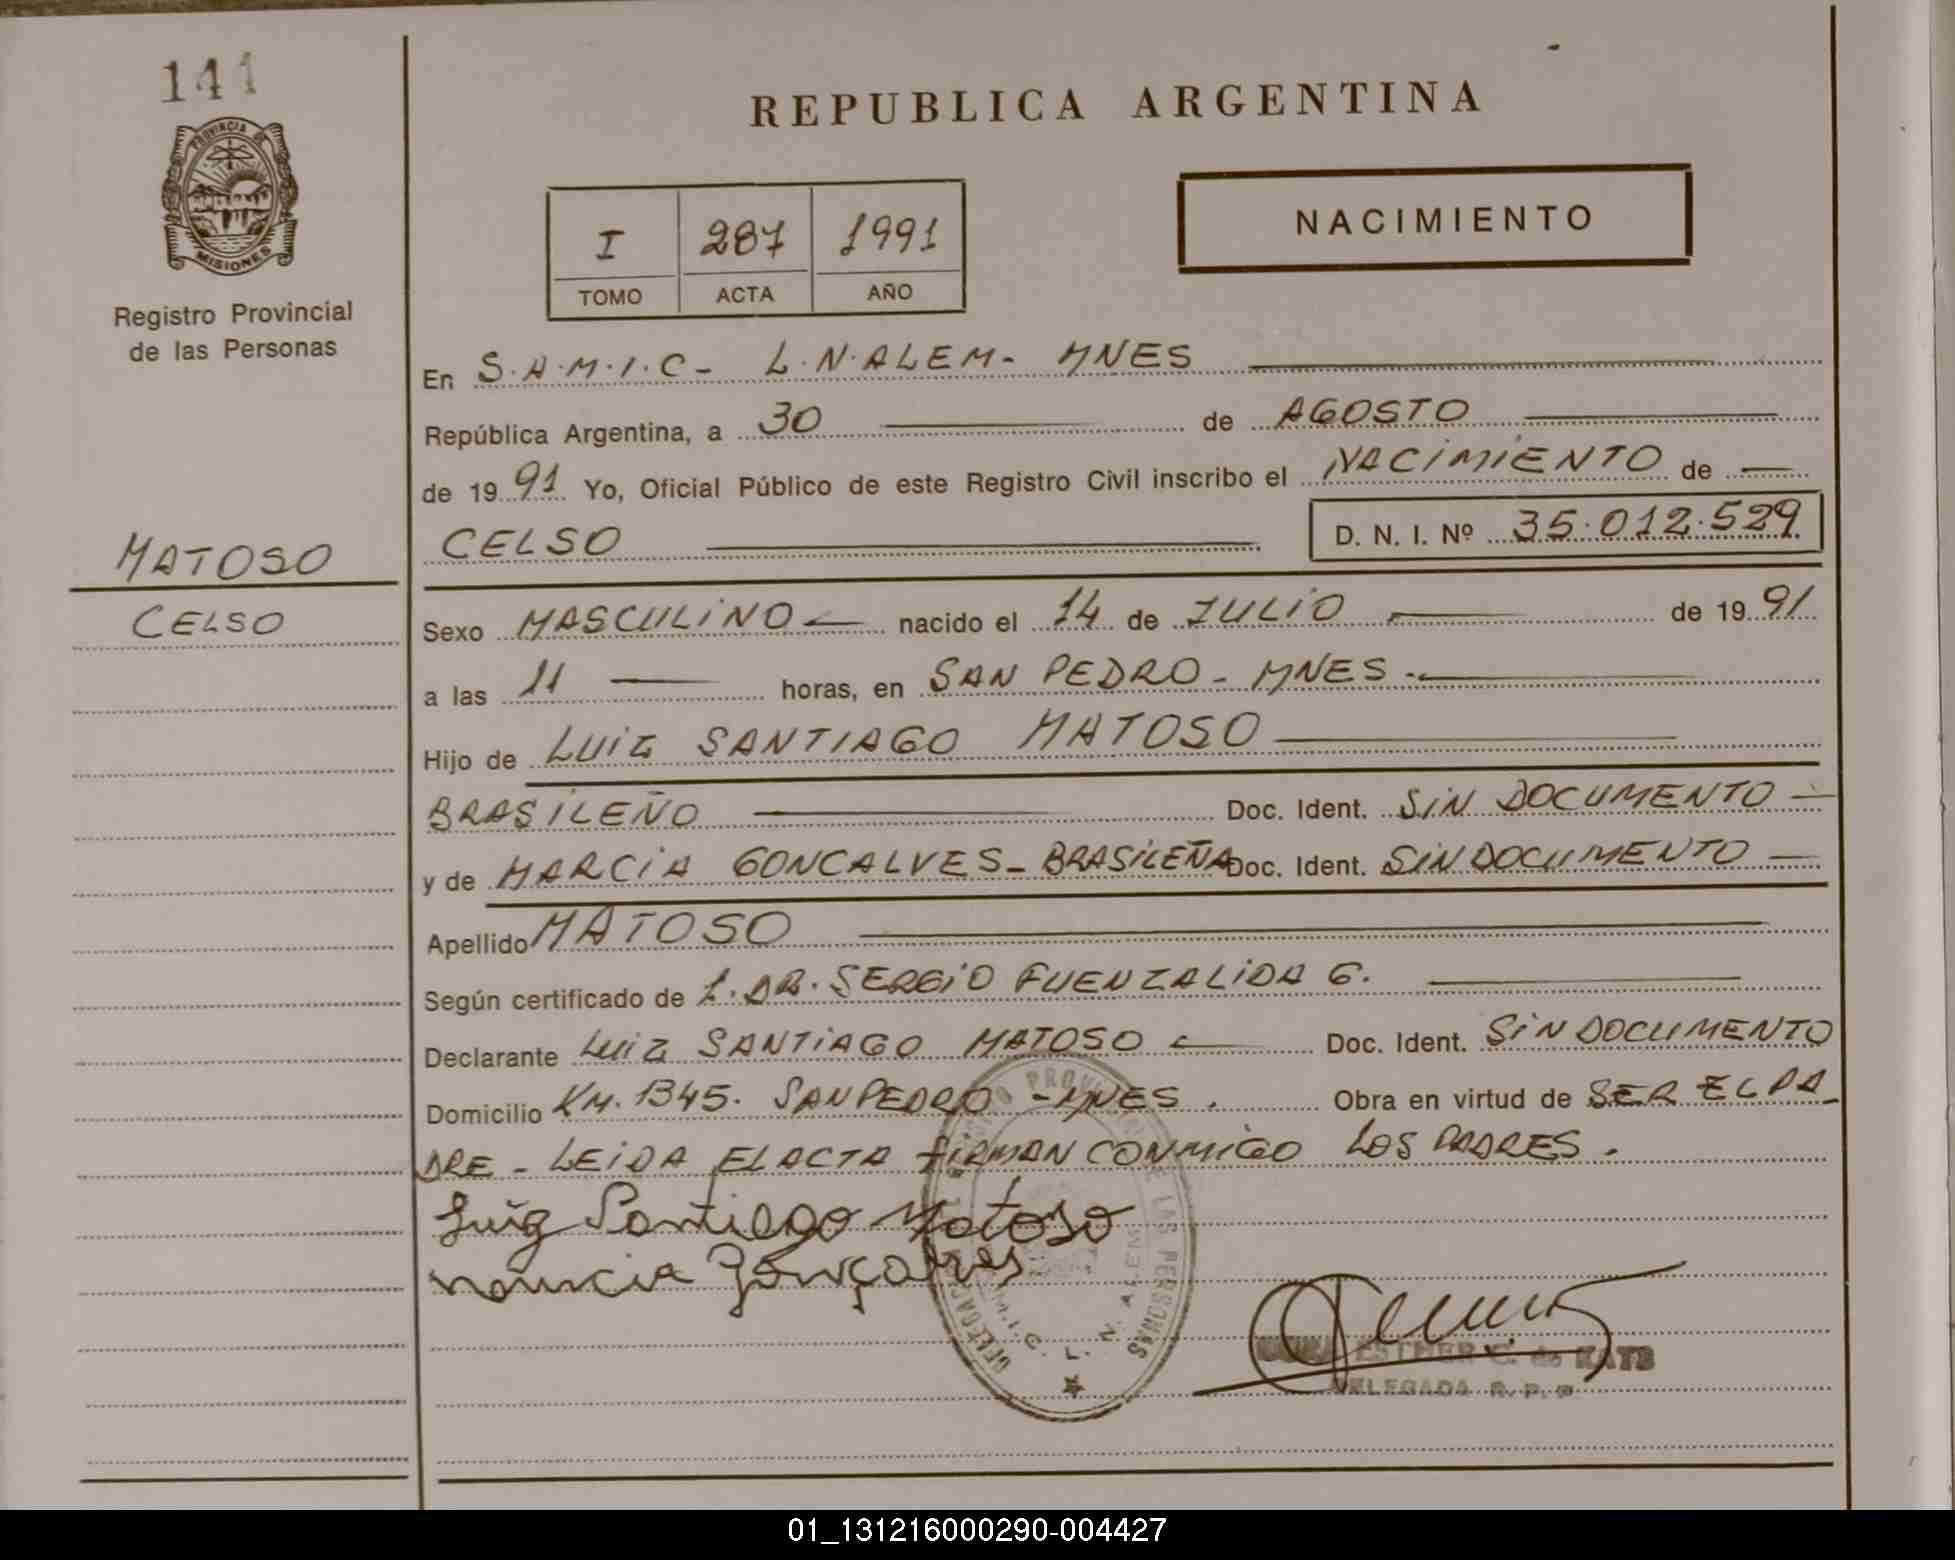 141
PROVINCIA DE
MISIONES
Registro Provincial
de las Personas
MATOSO
CELSO
REPUBLICA ARGENTINA
I 287 1991
TOMO ACTA AÑO
NACIMIENTO
En S.A.M.I.C- L.N.ALEM- MNES
República Argentina, a 30 de AGOSTO
de 1991 Yo, Oficial Público de este Registro Civil inscribo el NACIMIENTO de
CELSO D. N. I. Nº 35.012.529
Sexo MASCULINO nacido el 14 de JULIO de 1991
a las 11 horas, en SAN PEDRO - MNES.
Hijo de LUIZ SANTIAGO MATOSO
BRASILEÑO Doc. Ident. SIN DOCUMENTO
y de MARCIA GONCALVES - BRASILEÑA Doc. Ident. SIN DOCUMENTO
Apellido MATOSO
Según certificado de 1. DR. SERGIO FUENZALIDA G.
Declarante LUIZ SANTIAGO MATOSO Doc. Ident. SIN DOCUMENTO
Domicilio KM. 1345. SAN PEDRO - MNES. Obra en virtud de SER EL PA-
DRE - LEIDA EL ACTA FIRMAN CONMIGO LOS PADRES.
Luiz Santiago Matoso
marcia Gonçalves
ESTHER C. de KATS
DELEGADA R. P. P
01_131216000290-004427